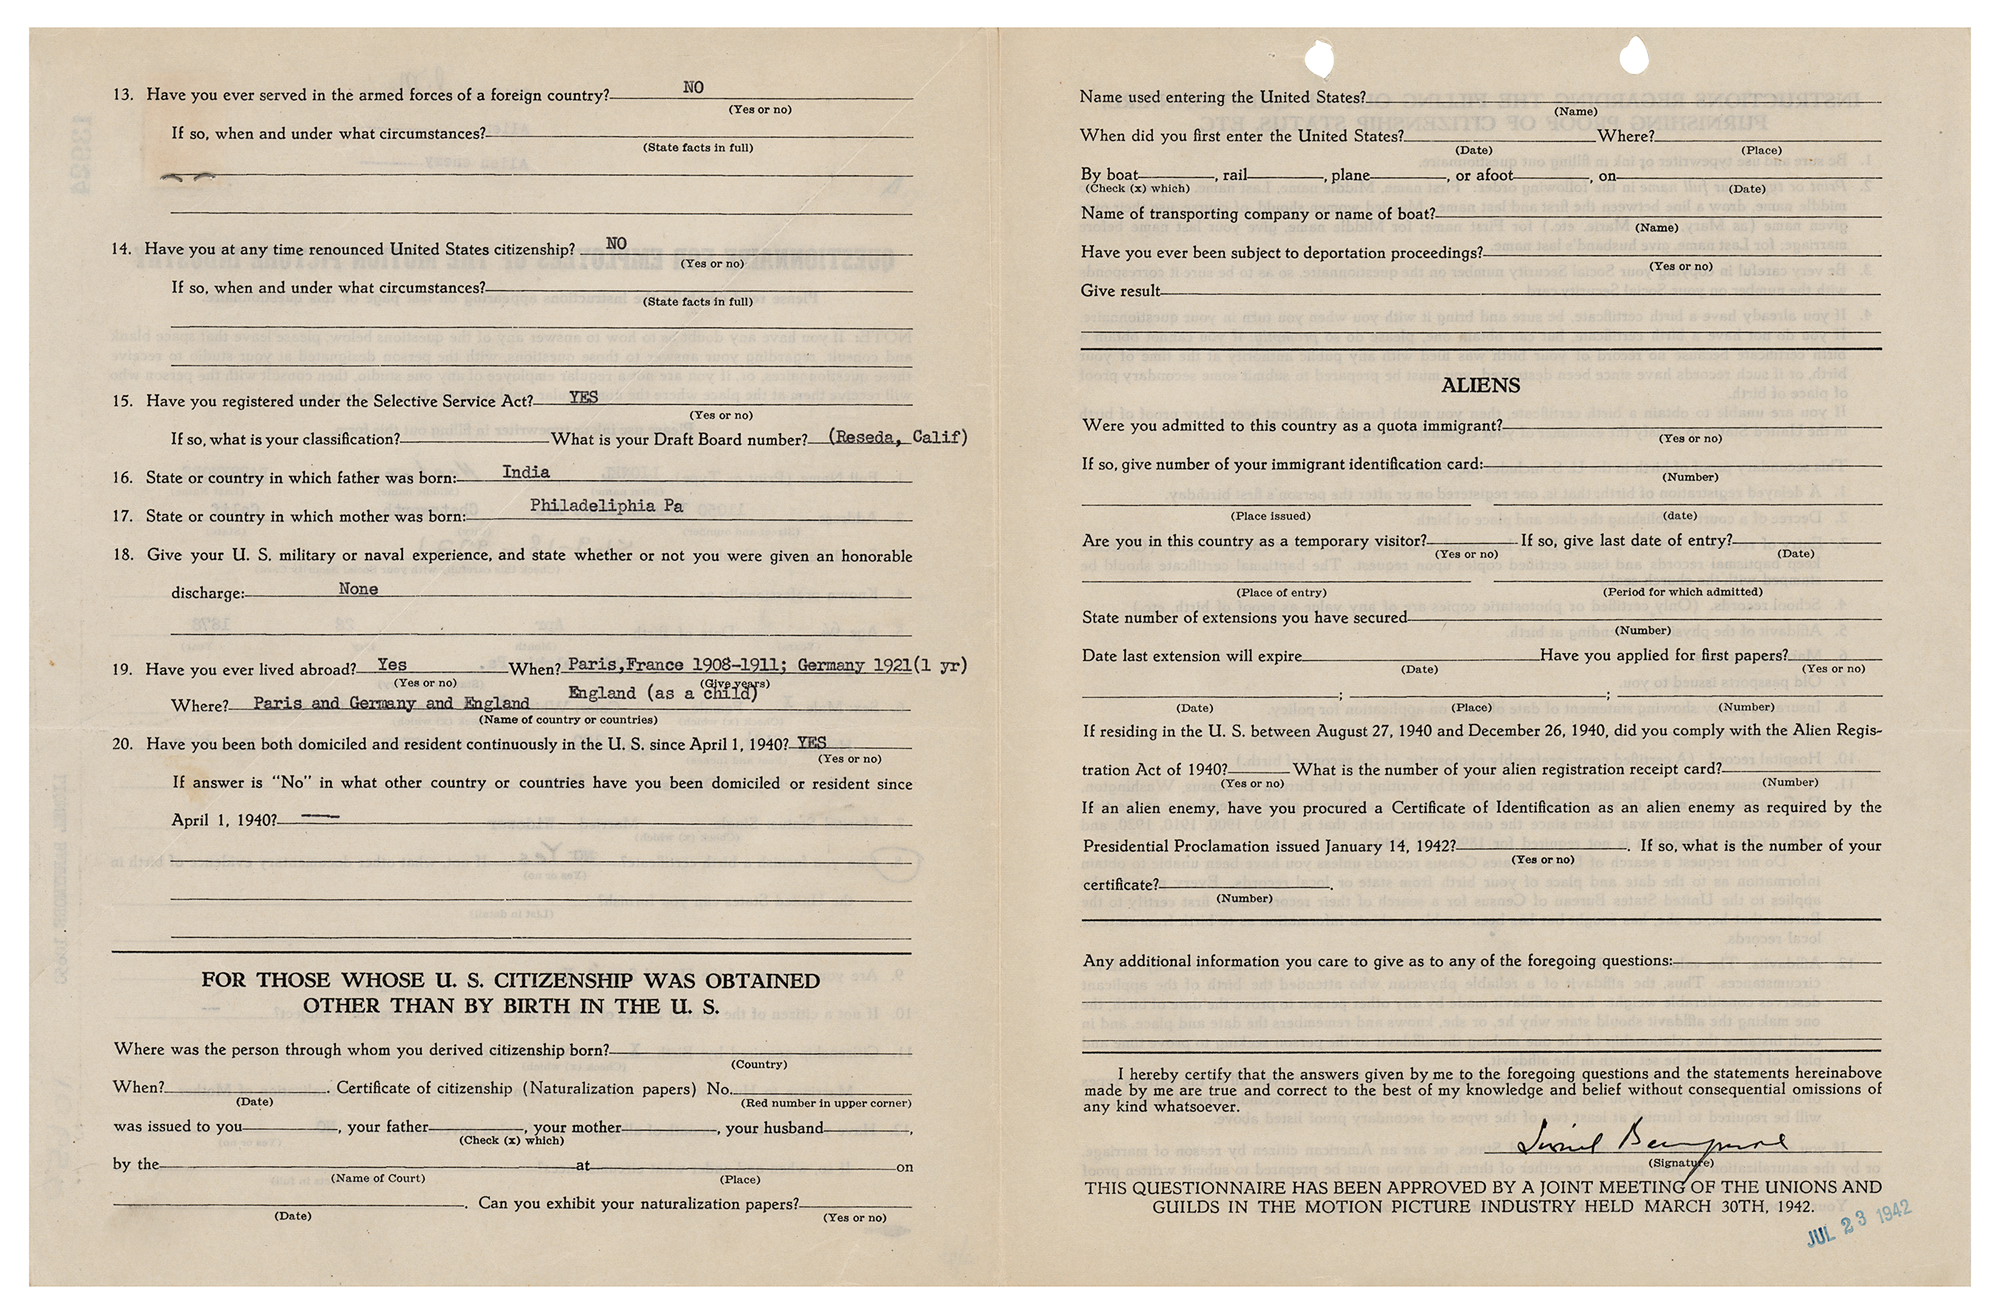 13. Have you ever served in the armed forces of a foreign country? NO
(Yes or no)
If so, when and under what circumstances?
(State facts in full)
14. Have you at any time renounced United States citizenship? NO
(Yes or no)
If so, when and under what circumstances?
(State facts in full)
15. Have you registered under the Selective Service Act? YES
(Yes or no)
If so, what is your classification? What is your Draft Board number? (Reseda, Calif)
16. State or country in which father was born: India
17. State or country in which mother was born: Philadeliphia Pa
18. Give your U. S. military or naval experience, and state whether or not you were given an honorable
discharge: None
19. Have you ever lived abroad? Yes When? Paris,France 1908-1911; Germany 1921(1 yr)
(Yes or no) (Give years)
England (as a child)
Where? Paris and Germany and England
(Name of country or countries)
20. Have you been both domiciled and resident continuously in the U. S. since April 1, 1940? YES
(Yes or no)
If answer is "No" in what other country or countries have you been domiciled or resident since
April 1, 1940? —
FOR THOSE WHOSE U. S. CITIZENSHIP WAS OBTAINED
OTHER THAN BY BIRTH IN THE U. S.
Where was the person through whom you derived citizenship born?
(Country)
When? . Certificate of citizenship (Naturalization papers) No.
(Date) (Red number in upper corner)
was issued to you , your father , your mother , your husband ,
(Check (x) which)
by the at on
(Name of Court) (Place)
. Can you exhibit your naturalization papers?
(Date) (Yes or no)
Name used entering the United States?
(Name)
When did you first enter the United States? Where?
(Date) (Place)
By boat , rail , plane , or afoot , on
(Check (x) which) (Date)
Name of transporting company or name of boat?
(Name)
Have you ever been subject to deportation proceedings?
(Yes or no)
Give result
ALIENS
Were you admitted to this country as a quota immigrant?
(Yes or no)
If so, give number of your immigrant identification card:
(Number)
(Place issued) (date)
Are you in this country as a temporary visitor? If so, give last date of entry?
(Yes or no) (Date)
(Place of entry) (Period for which admitted)
State number of extensions you have secured
(Number)
Date last extension will expire Have you applied for first papers?
(Date) (Yes or no)
; ;
(Date) (Place) (Number)
If residing in the U. S. between August 27, 1940 and December 26, 1940, did you comply with the Alien Regis-
tration Act of 1940? What is the number of your alien registration receipt card?
(Yes or no) (Number)
If an alien enemy, have you procured a Certificate of Identification as an alien enemy as required by the
Presidential Proclamation issued January 14, 1942? . If so, what is the number of your
(Yes or no)
certificate? .
(Number)
Any additional information you care to give as to any of the foregoing questions:
I hereby certify that the answers given by me to the foregoing questions and the statements hereinabove
made by me are true and correct to the best of my knowledge and belief without consequential omissions of
any kind whatsoever.
Lionel Barrymore
(Signature)
THIS QUESTIONNAIRE HAS BEEN APPROVED BY A JOINT MEETING OF THE UNIONS AND
GUILDS IN THE MOTION PICTURE INDUSTRY HELD MARCH 30TH, 1942.
JUL 23 1942